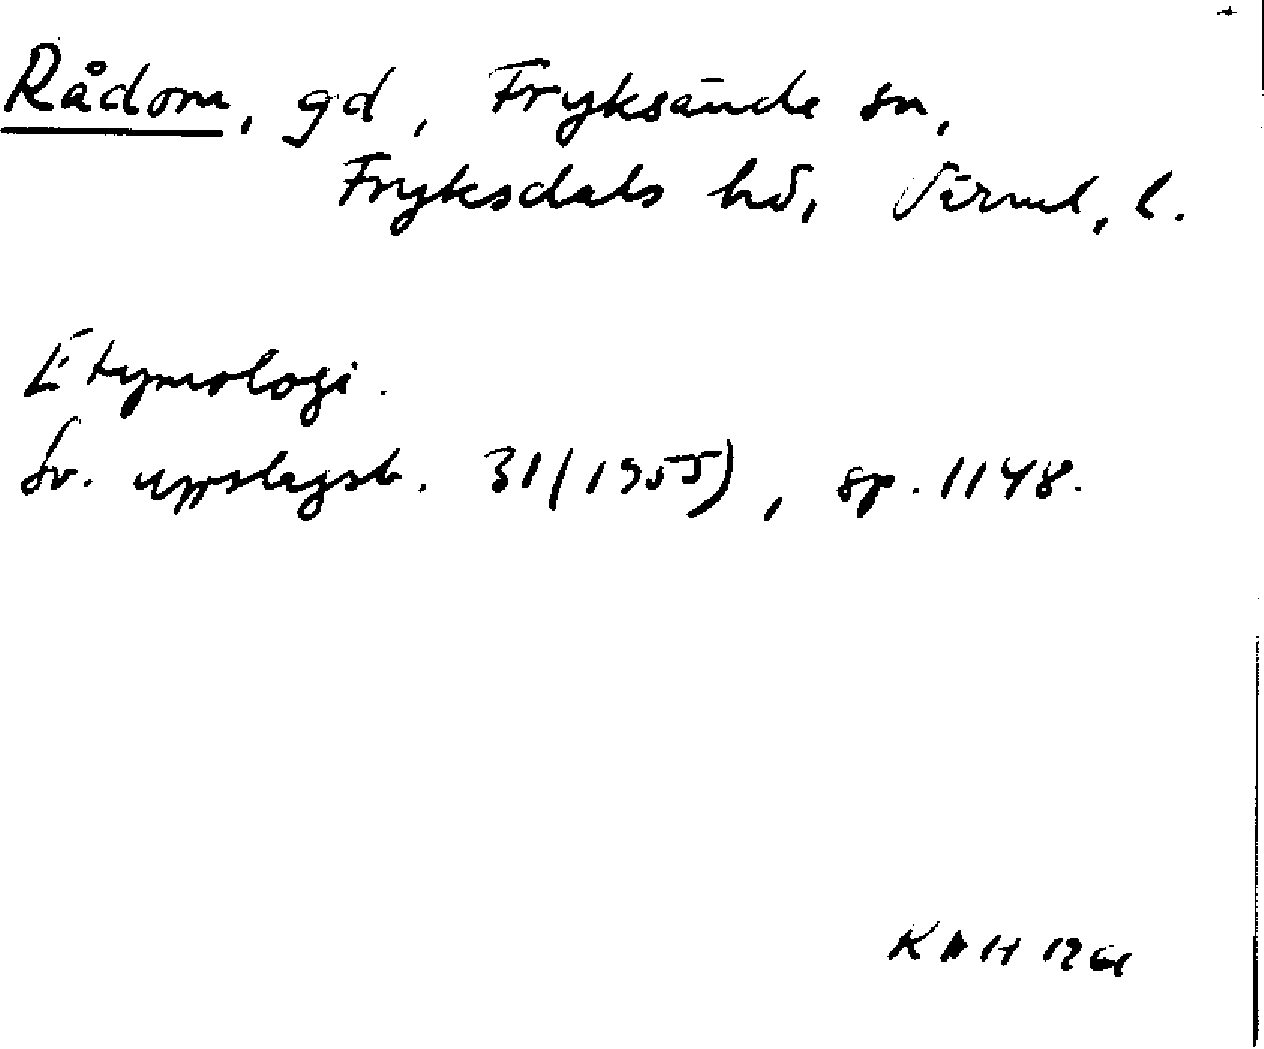 Rådom, gd, Fryksände sn,
Fryksdals hd, Värml. l.
Etymologi.
Sv. uppslagsb. 31(1955), sp. 1148.
KAH 1961